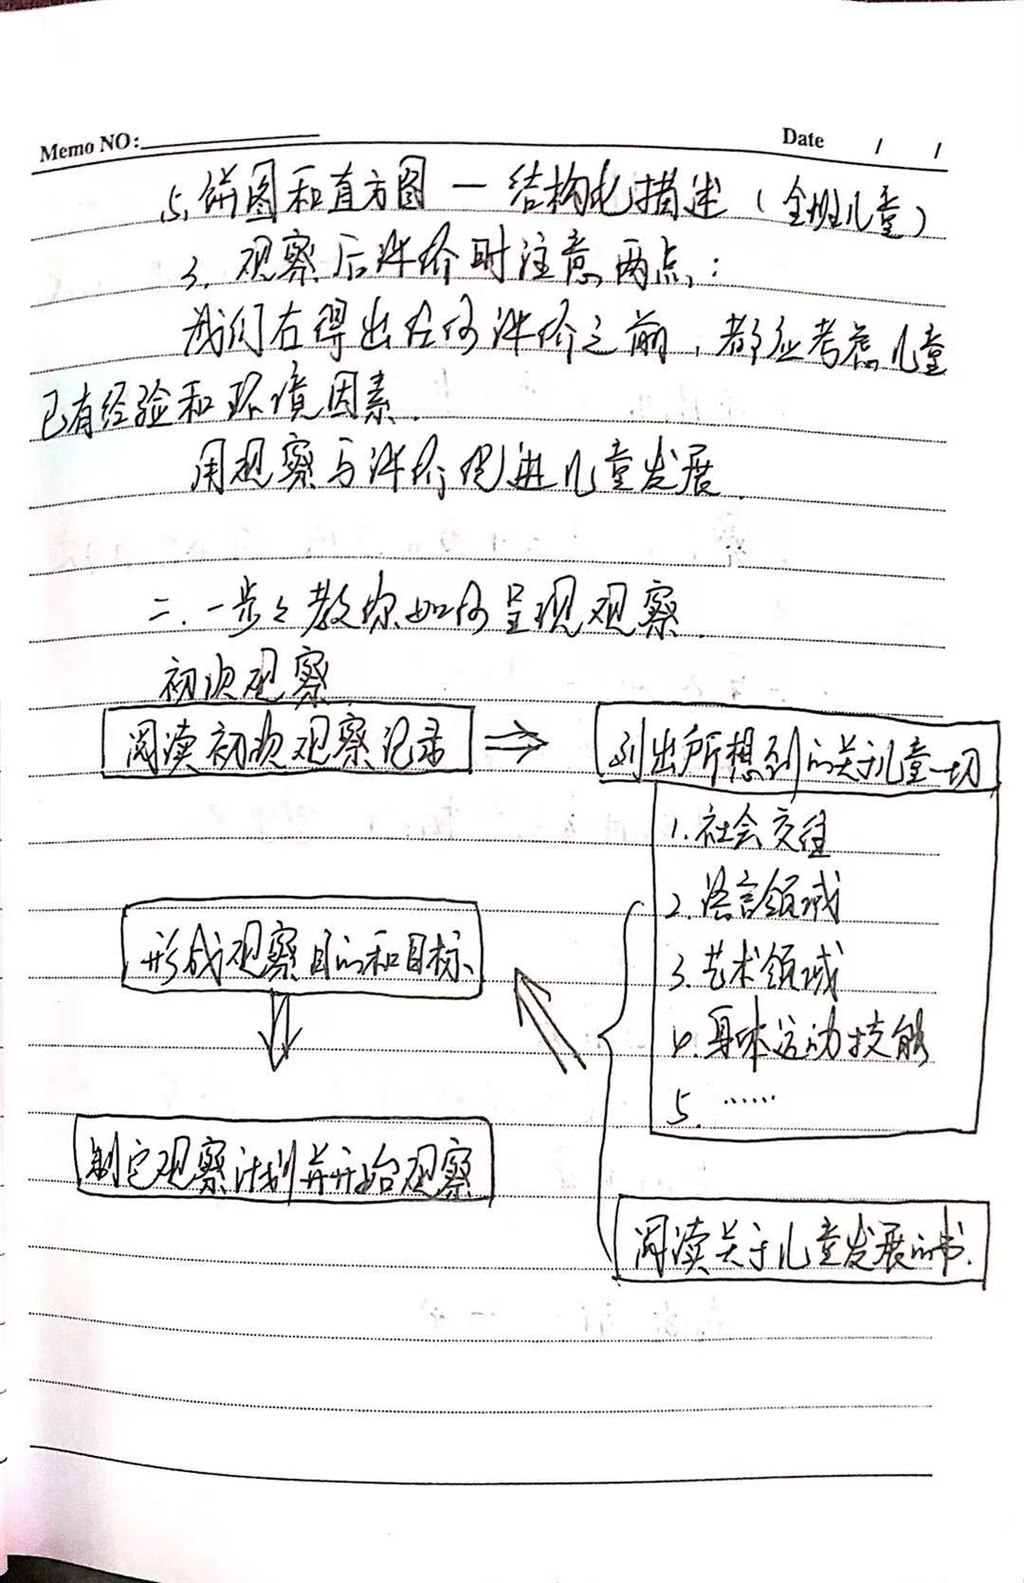 Memo NO:
Date / /
5. 饼图和直方图 — 结构化描述（全班儿童）
3. 观察后评价时注意两点：
我们在得出任何评价之前，都应考虑儿童
已有经验和环境因素.
用观察与评价促进儿童发展.
二. 一步々教你如何呈现观察.
初次观察
阅读初次观察记录 ⇒ 列出所想到的关于儿童一切
1. 社会交往
2. 语言领域
3. 艺术领域
4. 身体运动技能
5. ……
形成观察目的和目标
制定观察计划并开始观察
阅读关于儿童发展的书.